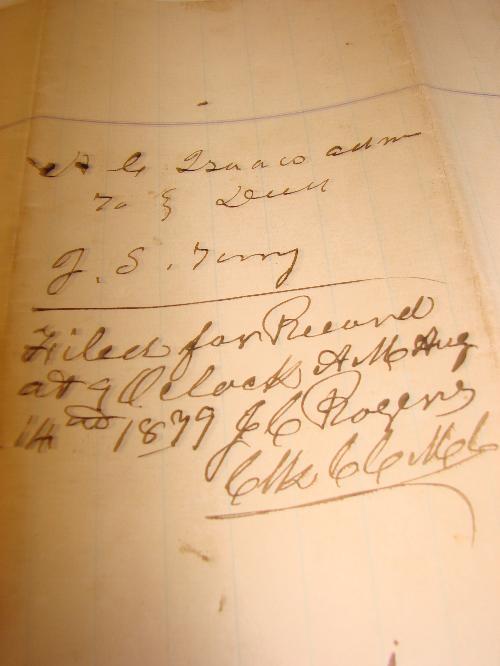 A C Isaacs adm
To } Deed
J. S. Terry
Filed for Record
at 9 O'clock A M Aug
14th 1879 J C Rogers
Clk C C M C